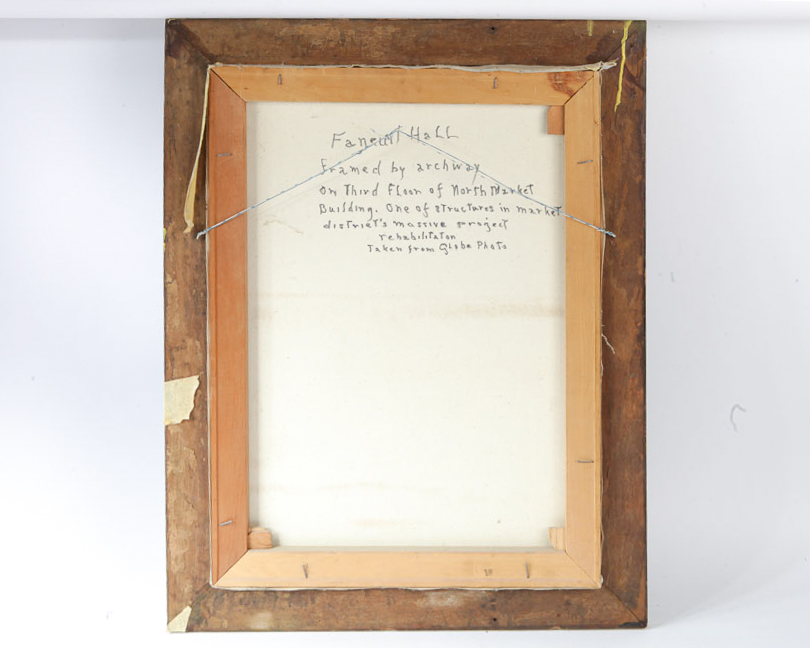 Faneuil Hall
Framed by archway
On Third Floor of North Market
Building. One of structures in market
district's massive project
rehabilitaton
Taken from Globe Photo